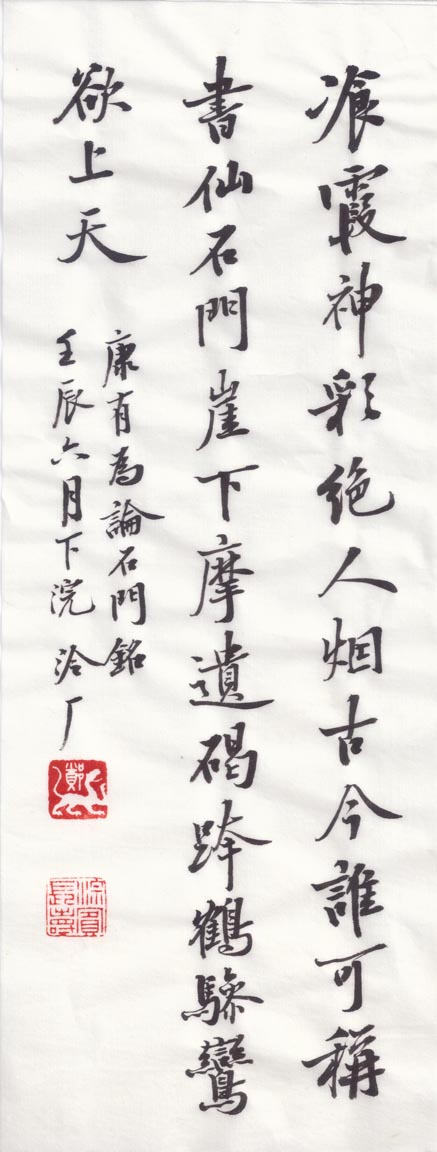 飡霞神彩絶人烟古今誰可稱
書仙石門崖下摩遺碣跨鶴驂鸞
欲上天
康有為論石門銘
壬辰六月下浣洽厂